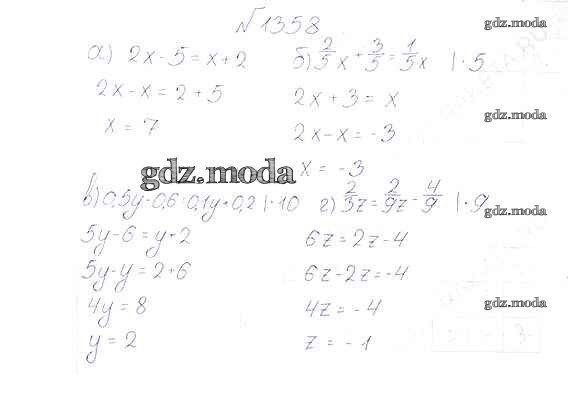 №1358
gdz.moda
а) 2x - 5 = x + 2
2x - x = 2 + 5
x = 7
б) 2/5 x + 3/5 = 1/5 x | · 5
2x + 3 = x
gdz.moda
2x - x = -3
x = -3
gdz.moda
в) 0,5y - 0,6 = 0,1y + 0,2 | · 10
5y - 6 = y + 2
5y - y = 2 + 6
4y = 8
y = 2
г) 2/3 z = 2/9 z - 4/9 | · 9
gdz.moda
6z = 2z - 4
6z - 2z = -4
4z = -4
gdz.moda
z = -1